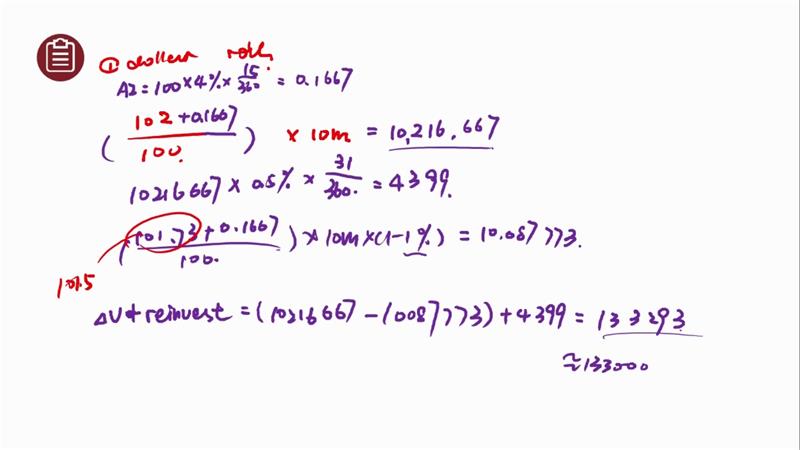 ① dollar roll.
AI = 100 × 4% × 15/360 = 0.1667
( (102 + 0.1667) / 100. ) × 10m = 10,216,667
10216667 × 0.5% × 31/360. = 4399.
( (101.73 + 0.1667) / 100. ) × 10m × (1-1%) = 10.087773.
101.5
ΔV + reinvest = (10216667 - 10087773) + 4399 = 133293
≈133000